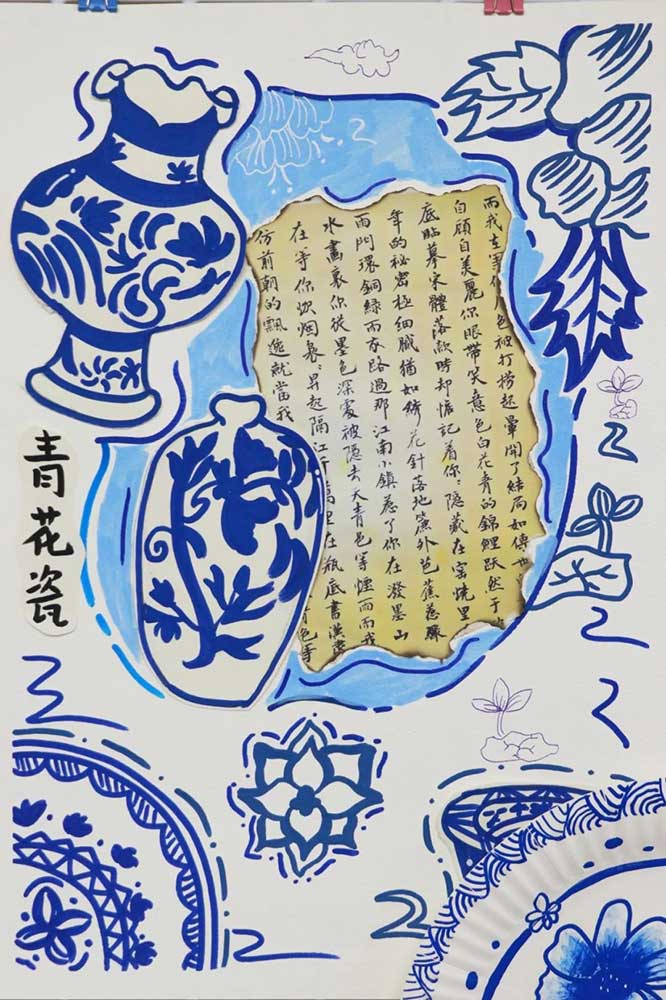 青花瓷
而我在等你色被打捞起暈開了結局如傳世
自顧自美麗你眼帶笑意色白花青的錦鯉跃然于
底貼摹宋體落款時却惦記着你隱藏在窑燒里
年的秘密極細腻猶如綉花針落地簾外芭蕉惹驟
雨門環銅綠而我路過那江南小鎮惹了你在潑墨山
水畫裏你從墨色深處被隱去天青色等煙雨而我
在等你炊烟裊裊昇起隔江千萬里在瓶底書漢隶
仿前朝的飄逸就當我色等